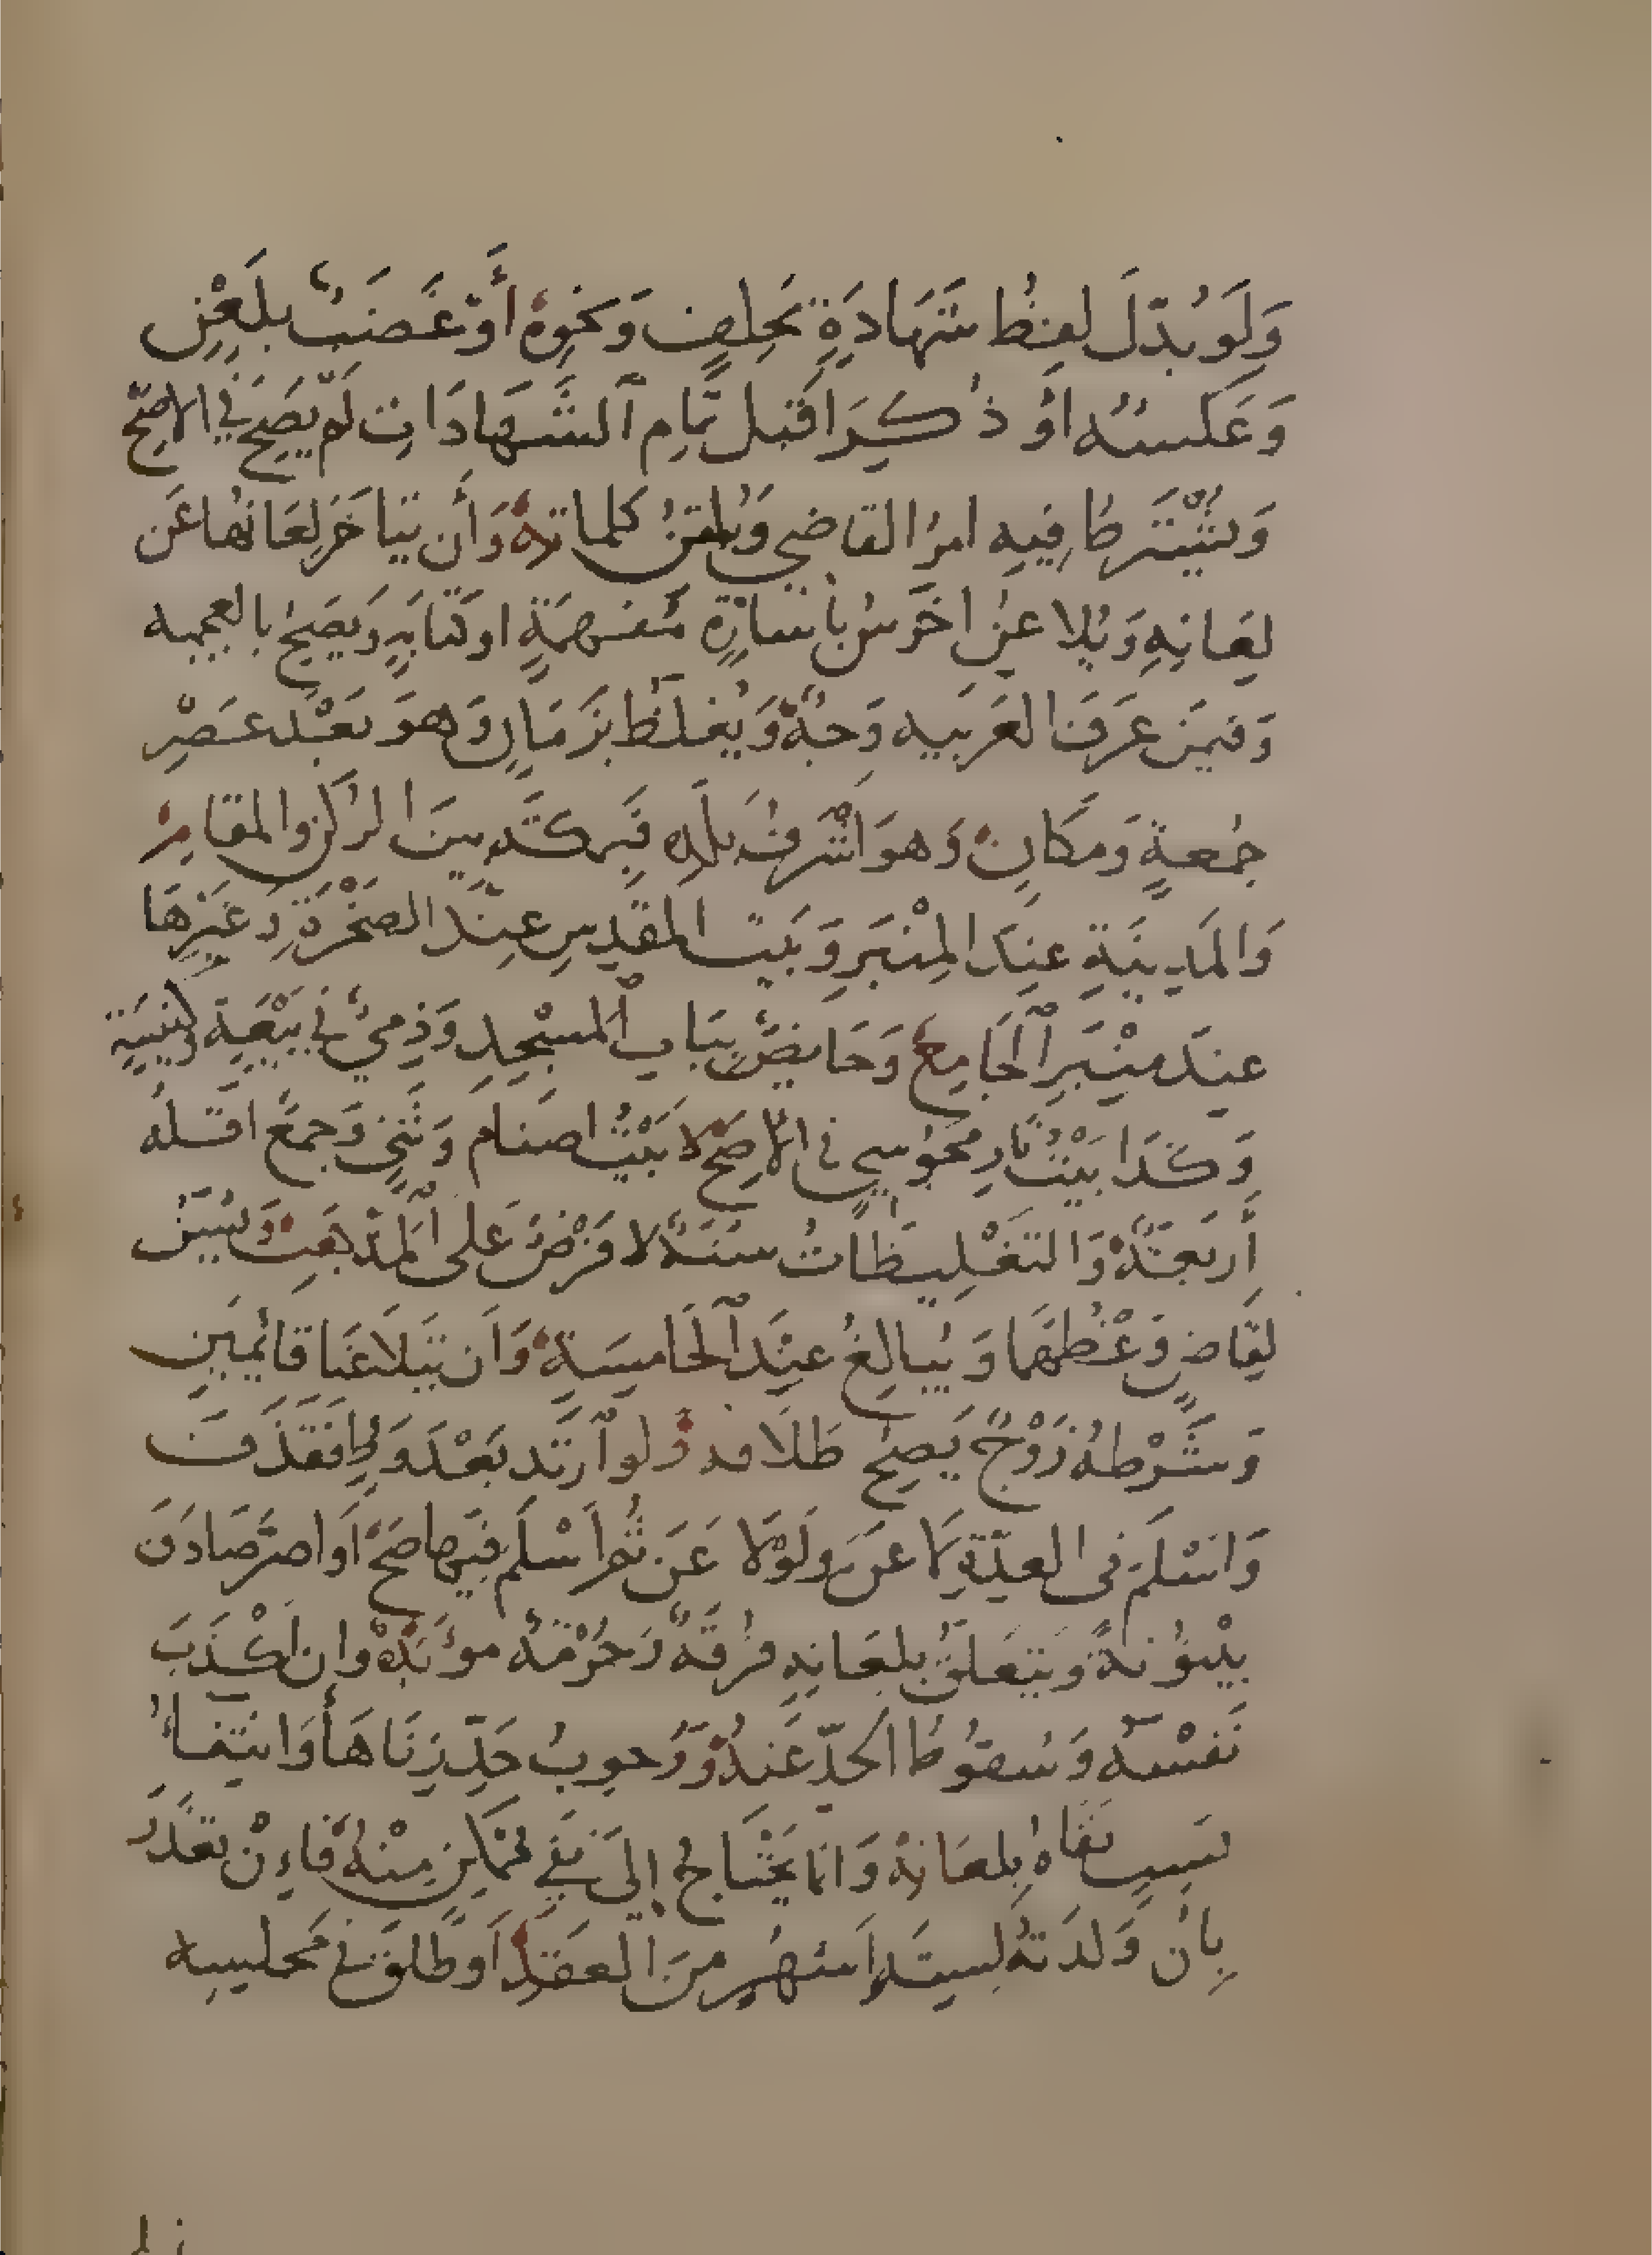 وَلَوْ بُدِّلَ لفظُ شَهَادَةٍ بحَلِفٍ وَنحْوِهِ أَوْ غَضَبٌ بلَعْنٍ
وَعَكسُهُ اوْ ذُكِرَا قَبل تمَامِ الشَّهَادَاتِ لَمْ يَصِحَّ في الاصَحِّ
وَيُشْتَرطُ فِيهِ امرُ القاضِي وَيُلقنُ كلماتهُ وَأَن يتاخرَ لِعَانُها عَن
لِعَانِهِ وَيُلاعِنُ اخرَسُ بإشارَةٍ مُفهِمَةٍ او كتَابَةٍ وَيَصِحُ بالعجميه
وَفيمَن عَرَفَ العَربيه وَجهٌ وَيُغلظ بزَمَانٍ وَهوَ بَعْدَ عَصْرِ
جُمعةٍ وَمكَانٍ وَهوَ اشْرَفُ بلدِهِ فبمكةَ بينَ الركنِ والمقامِ
وَالمَدِينَةِ عِندَ المِنْبَرِ وَبَيتِ المقدِسِ عِندَ الصَخْرَةِ وَغَيْرِهَا
عِندَ مِنْبَرِ الجَامِعِ وَحَائضٌ بِبَابِ المَسْجِدِ وَذِميٌّ في بَيْعَةٍ وكنِيسَةٍ
وَكذَا بَيْتُ نَارِ مجُوسِيٍ في الأصَحِّ لا بَيْتُ اصنَامِ وَثَنِيٍّ وَجمعٌ اقلهُ
أَربَعَةٌ وَالتغْلِيظَاتُ سُنَّةٌ لا فَرْضٌ عَلى المَذْهَبِ وَيُسَنُّ
لِقَاضٍ وَعْظُهُمَا وَيُبَالِغُ عِنْدَ الخَامِسَةِ وَأَن يَتَلاعَنَا قَائِمَينِ
وَشَرْطهُ زَوْجٌ يَصِحُّ طَلَاقهُ وَلو ارْتَد بَعْدَ وَطءٍ فَقَذَفَ
وَاسْلَمَ في العِدَّةِ لاعَنَ وَلَوْ لاعَنَ ثُمَّ اسْلَمَ فيهَا صَحَّ اَوْ اصَرَّ صَادَفَ
بيْنُونَةً وَيتَعَلقُ بلِعَانِهِ فُرْقَةٌ وَحُرْمَةٌ مؤَبَّدَةٌ وان اكْذَبَ
نَفْسَهُ وَسُقوُطُ الحَدِّ عَنهُ وَوُجوبُ حَدِّ زِنَاهَا وَانتِفَاءُ
نَسبٍ نَفَاهُ بلِعَانهِ وَانما يَحْتَاجُ إلَى نَفْي مُمْكِنٍ مِنْهُ فَإِنْ تعَذَّرَ
بِأن وَلدَتهُ لِستةِ اَشهُرٍ مِنَ العَقْدِ أو طَلقَ في مَجلسِه